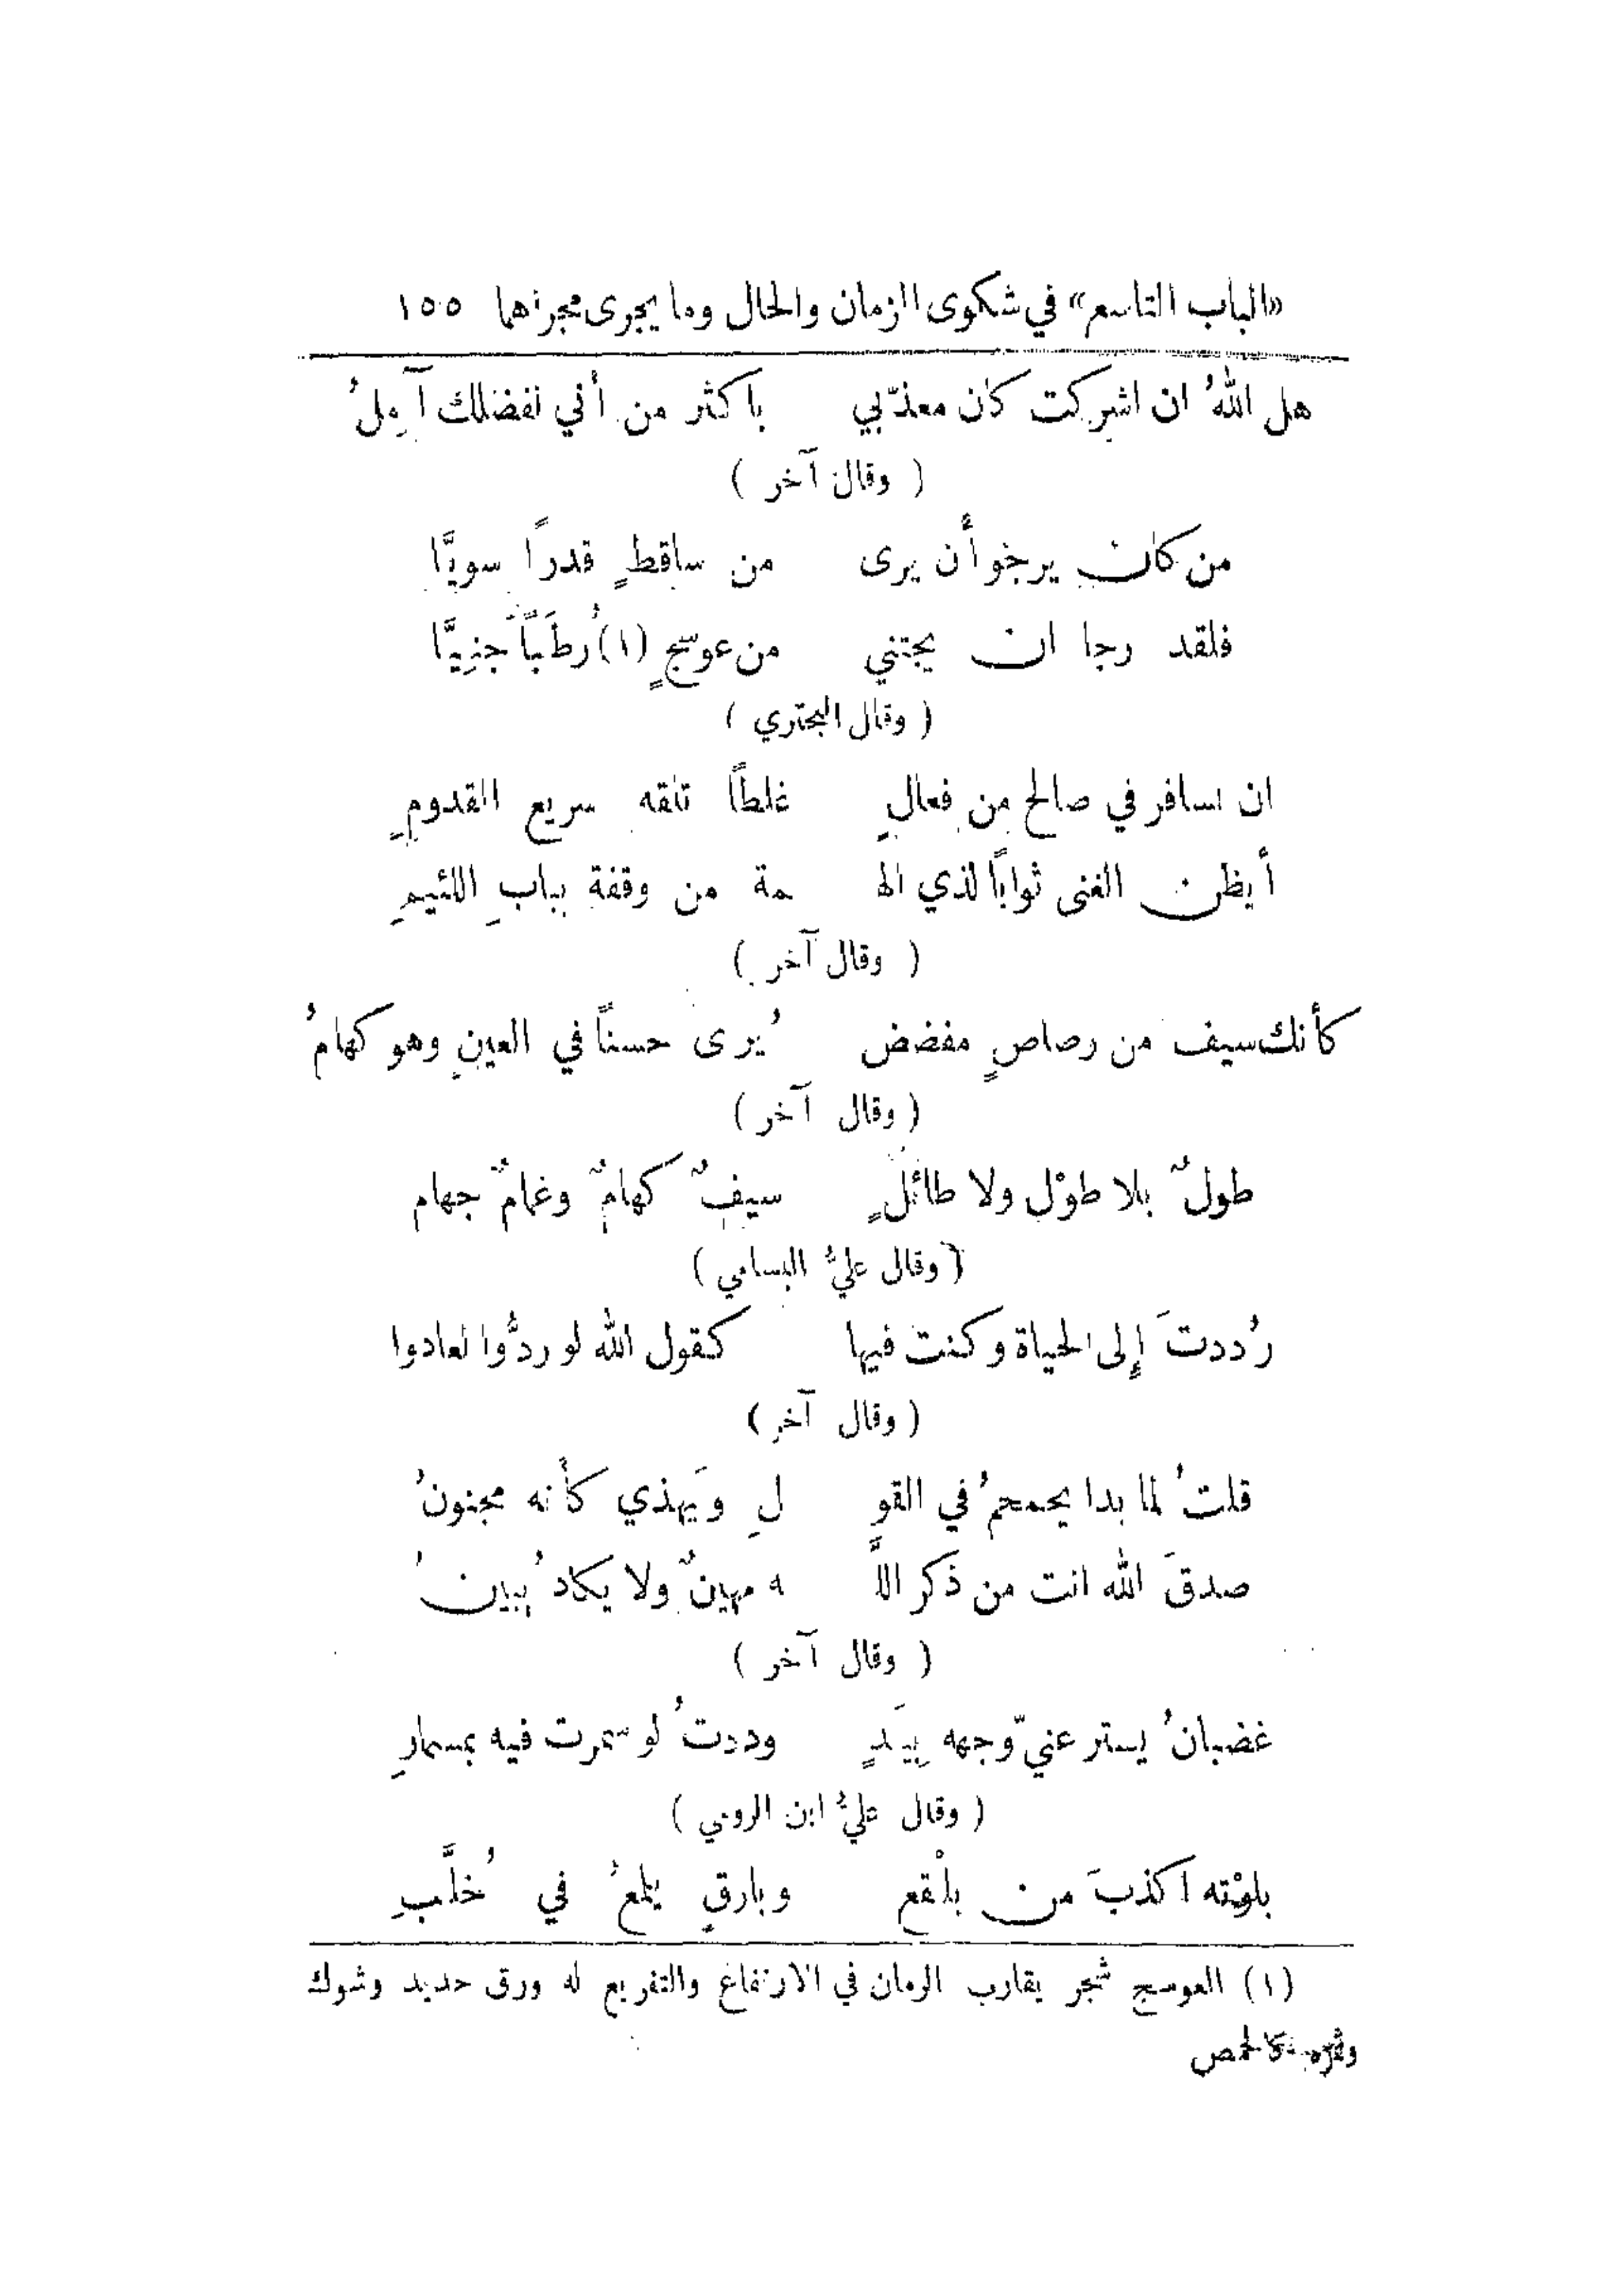 «الباب التاسع» في شكوى الزمان والحال وما يجرى مجراهما ١٥٥
هل اللهُ ان اشركت كان معذّبي باكثر من أني لفضلك آمِلُ
( وقال آخر )
من كان يرجو أن يرى من ساقطٍ قدرًا سويَّا
فلقد رجا ان يجتني من عوسجٍ (١) رُطَبًا جَنِيَّا
( وقال البحتري )
ان سافر في صالح من فعالٍ غلطًا تلقه سريع القدومِ
أيظن الغنى ثوابًا لذي اله مة من وقفة ببابِ اللئيمِ
( وقال آخر )
كأنك سيف من رصاصٍ مفضض يُرى حسنًا في العينِ وهو كهامُ
( وقال آخر )
طولٌ بلا طوْل ولا طائلٍ سيفٌ كهامٌ وغمامٌ جهام
( وقال عليٌّ البسامي )
رُددتَ إِلى الحياة وكنت فيها كقول الله لو ردُّوا لعادوا
( وقال آخر )
قلتُ لما بدا يجمجمُ في القو لِ ويَهذي كأنه مجنونُ
صدقَ الله انت من ذكر اللَّ ه مهينٌ ولا يكادُ يبينُ
( وقال آخر )
غضبانُ يستر عنيّ وجهه بِيَدٍ وددتُ لو سمرت فيه بمسمارِ
( وقال عليٌّ ابن الرومي )
بلوْته اكذبَ من بلْقع وبارقٍ يلمعُ في خُلَّبِ
(١) العوسج شجر يقارب الرمان في الارتفاع والتفريع له ورق حديد وشوك
وثمره كالحمص